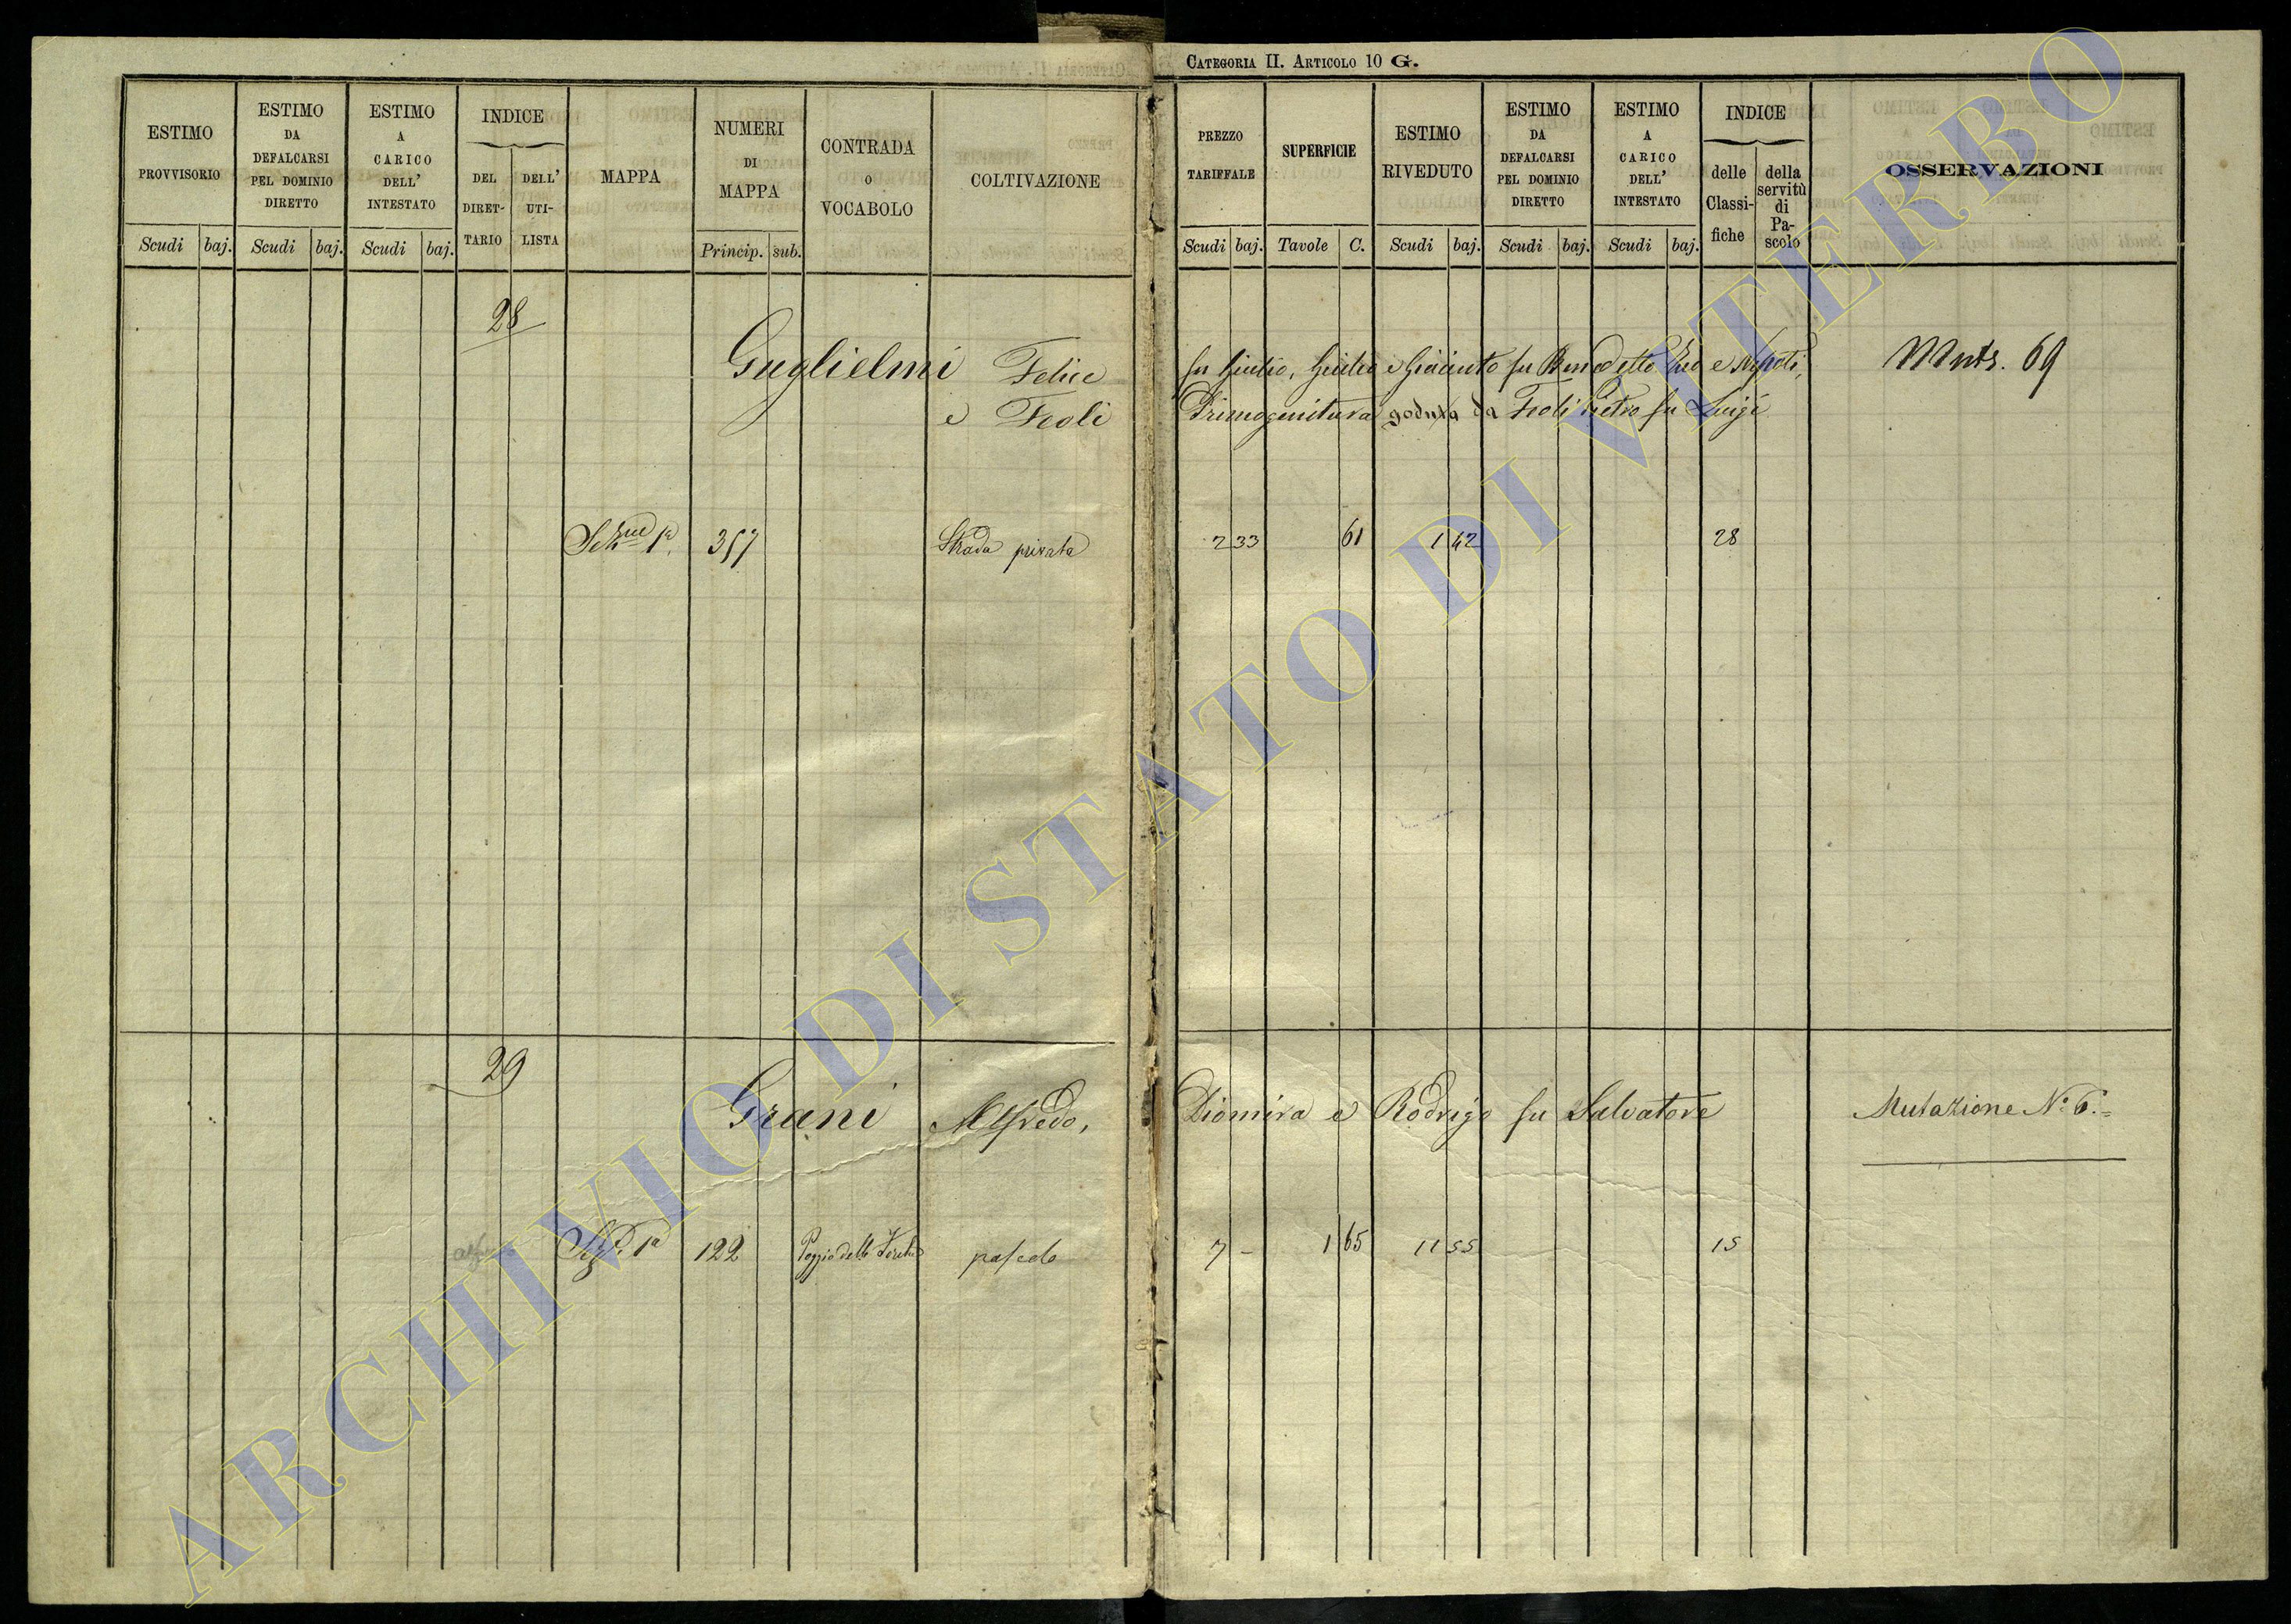 CATEGORIA II. ARTICOLO 10 G.
ESTIMO PROVVISORIO
ESTIMO DA DEFALCARSI PEL DOMINIO DIRETTO
ESTIMO A CARICO DELL' INTESTATO
INDICE
DEL DIRET-TARIO
DELL' UTI-LISTA
MAPPA
NUMERI DI MAPPA
CONTRADA O VOCABOLO
COLTIVAZIONE
Scudi baj. Scudi baj. Scudi baj. Princip. sub.
PREZZO TARIFFALE
SUPERFICIE
ESTIMO RIVEDUTO
ESTIMO DA DEFALCARSI PEL DOMINIO DIRETTO
ESTIMO A CARICO DELL' INTESTATO
INDICE
delle Classi-fiche
della servitù di Pa-scolo
OSSERVAZIONI
Scudi baj. Tavole C. Scudi baj. Scudi baj. Scudi baj.
28
Guglielmi Felice fu Giulio, Giulio e Giacinto fu Benedetto Zio e Nipoti, Mutz. 69
e Feoli Primogenitura goduta da Feoli Pietro fu Luigi
Sezne 1a 357 Strada privata 2 33 61 1 42 28
29
Grani Alfredo, Diomira e Rodrigo fu Salvatore Mutazione No. 6.=
Seze 1a 122 Poggio delle Forche pascolo 7 – 1 65 11 55 15
ARCHIVIO DI STATO DI VITERBO